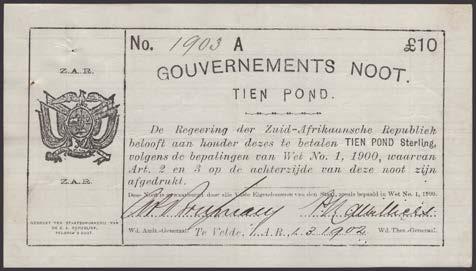 No. 1903 A £10
GOUVERNEMENTS NOOT.
TIEN POND.
Z.A.R.
De Regeering der Zuid-Afrikaansche Republiek
belooft aan houder dezes te betalen TIEN POND Sterling,
volgens de bepalingen van Wet No. 1, 1900, waarvan
Art. 2 en 3 op de achterzijde van deze noot zijn
afgedrukt.
Z.A.R.
Deze Noot is gewaarborgd door alle Vaste Eigendommen van den Staat, zooals bepaald in Wet No. 1, 1900.
GEDRUKT TER STAATSDRUKKERIJ VAN
DE Z. A. REPUBLIEK,
PILGRIM'S REST.
Wd. Audt.-Generaal. Te Velde, Z.A.R., 1.3.1902 Wd. Thes.-Generaal.